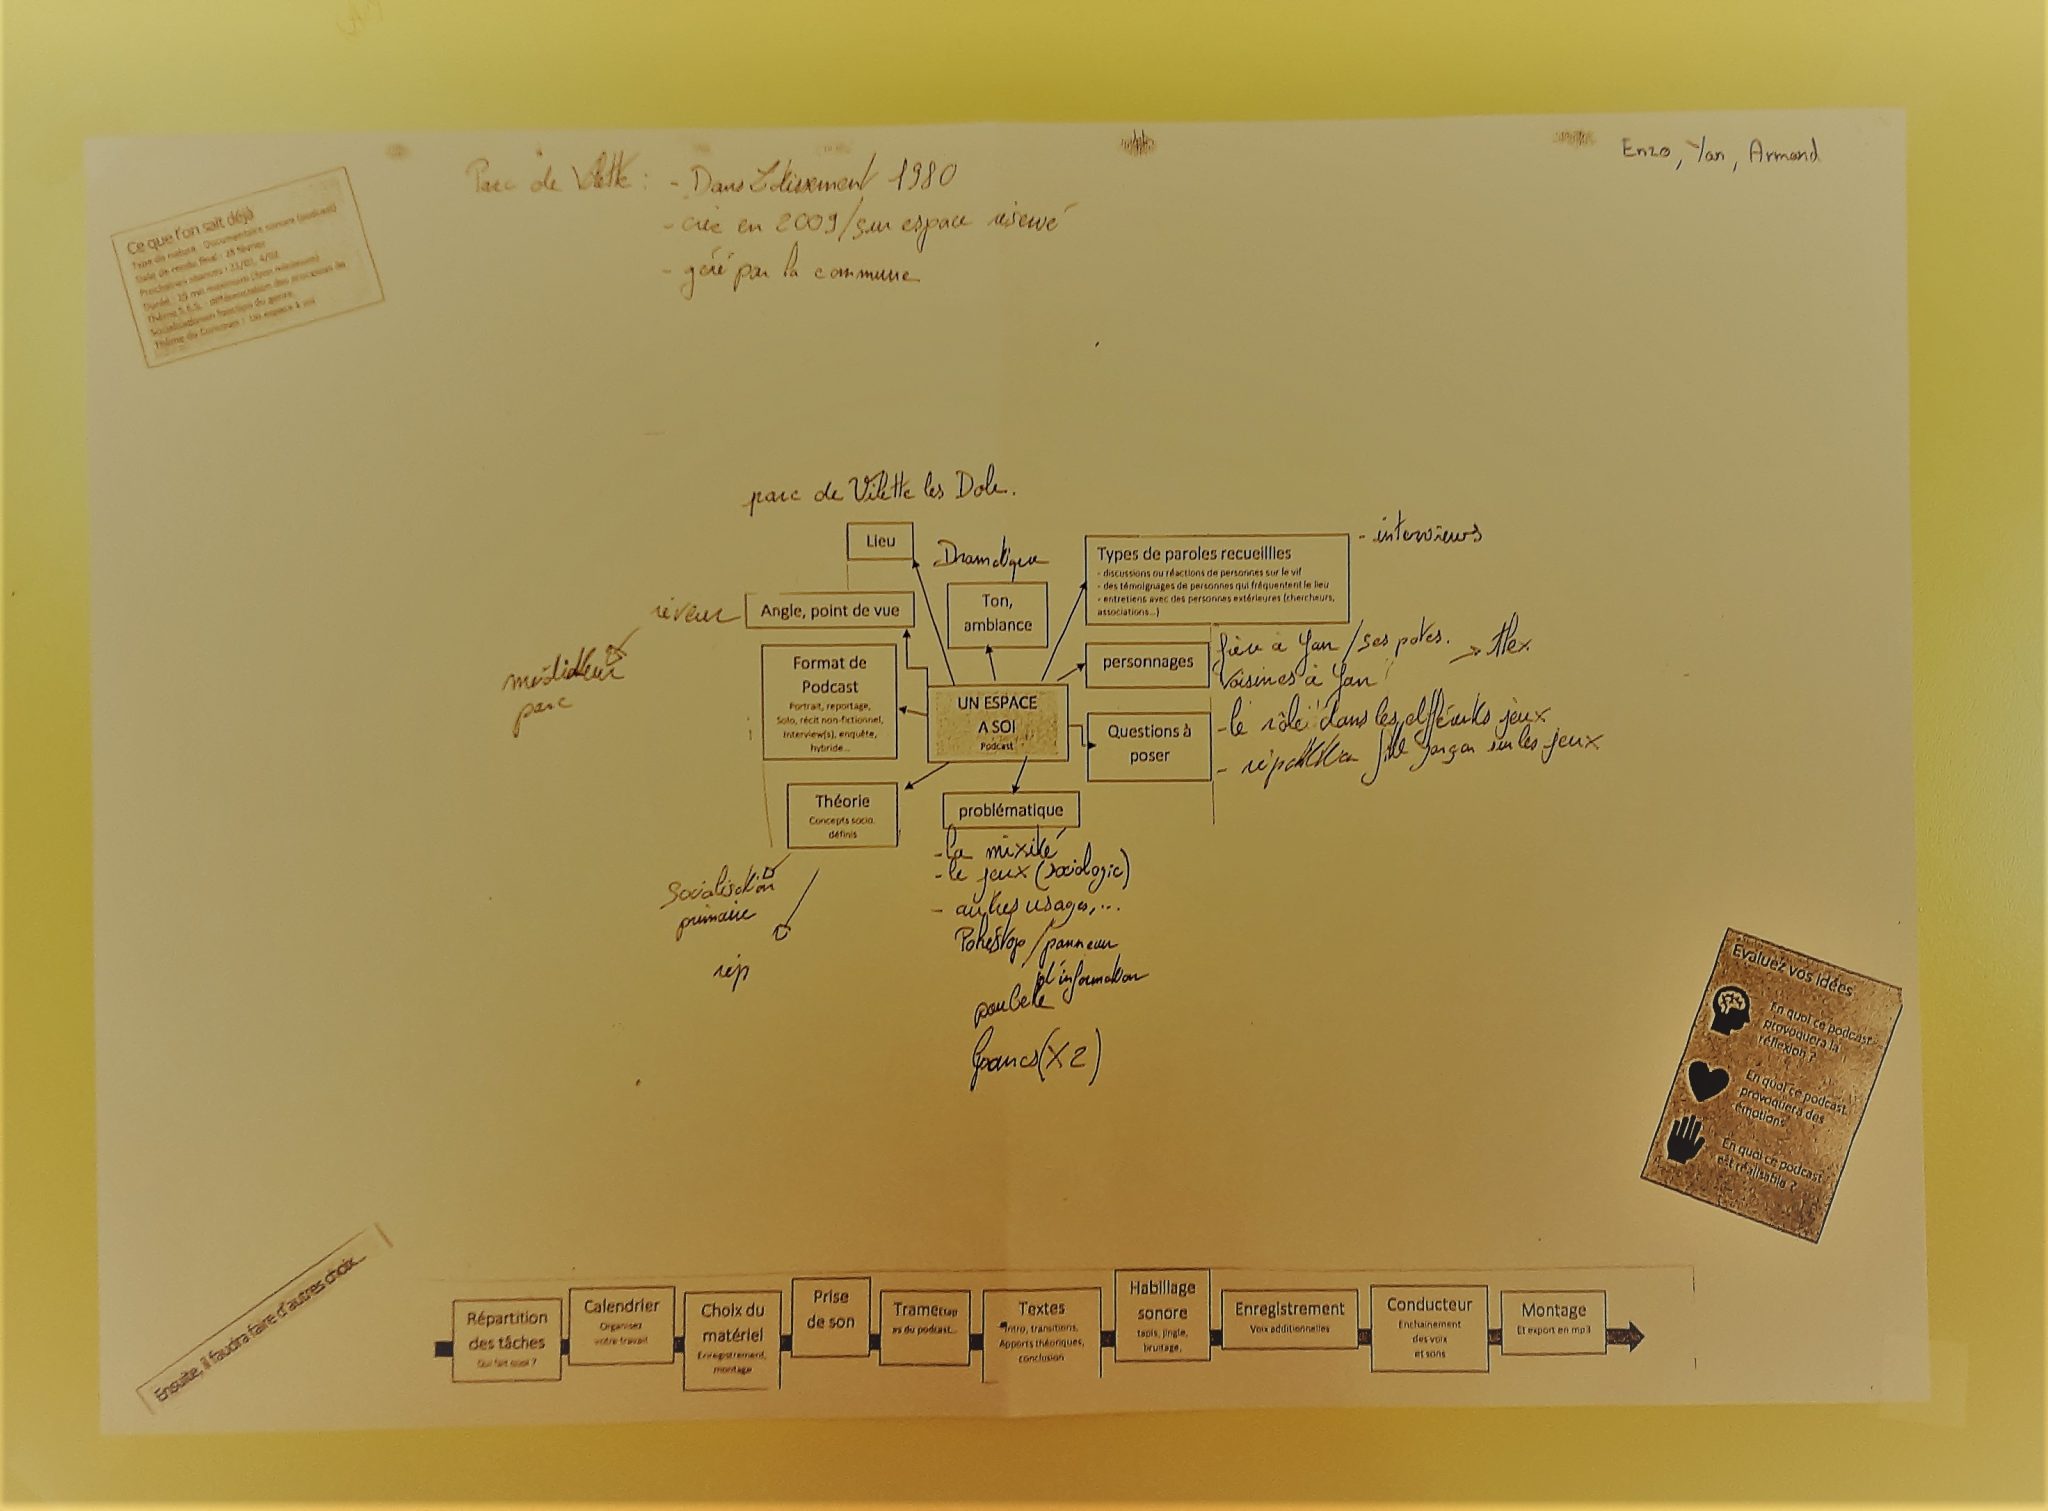 Enzo, Yan, Armand
Parc de Vilette : - Dans Lotissement 1980
- crée en 2009/sur espace réservé
- géré par la commune
Ce que l'on sait déjà
Type de nature : Documentaire sonore (podcast)
Date de rendu final : 28 février
Durée : 10 mn maximum (5mn minimum)
Socialisation en fonction du genre
Thème du Concours : Un espace à soi
parc de Vilette les Dole.
Lieu
Dramatique
Ton,
ambiance
Types de paroles recueillies
- discussions ou réactions de personnes sur le vif
- des témoignages de personnes qui fréquentent le lieu
- entretiens avec des personnes extérieures (chercheurs,
associations...)
- interviews
rêveur
Angle, point de vue
parc
Format de
Podcast
Portrait, reportage,
Solo, récit non-fictionnel,
Interview(s), enquête,
hybride...
personnages
à Yan / ses potes.
→ Alex
Voisines à Yan
UN ESPACE
A SOI
Podcast
Questions à
poser
- le rôle dans les différents jeux
- répartition fille garçon sur les jeux
Théorie
Concepts socio.
définis
Socialisation
primaire
rép
problématique
- la mixité
- le jeux (sociologie)
- autres usages,...
Pokéstop / panneau
d'information
poubelle
bancs (X2)
Evaluez vos idées
En quoi ce podcast
provoquera la
réflexion ?
En quoi ce podcast
provoquera des
émotions
En quoi ce podcast
est réalisable ?
Ensuite, il faudra faire d'autres choix...
Répartition
des tâches
Qui fait quoi ?
Calendrier
Organisez
votre travail
Choix du
matériel
Enregistrement,
montage
Prise
de son
Trame Etap
es du podcast...
Textes
Intro, transitions,
Apports théoriques,
conclusion
Habillage
sonore
tapis, jingle,
bruitage,
Enregistrement
Voix additionnelles
Conducteur
Enchainement
des voix
et sons
Montage
Et export en mp3